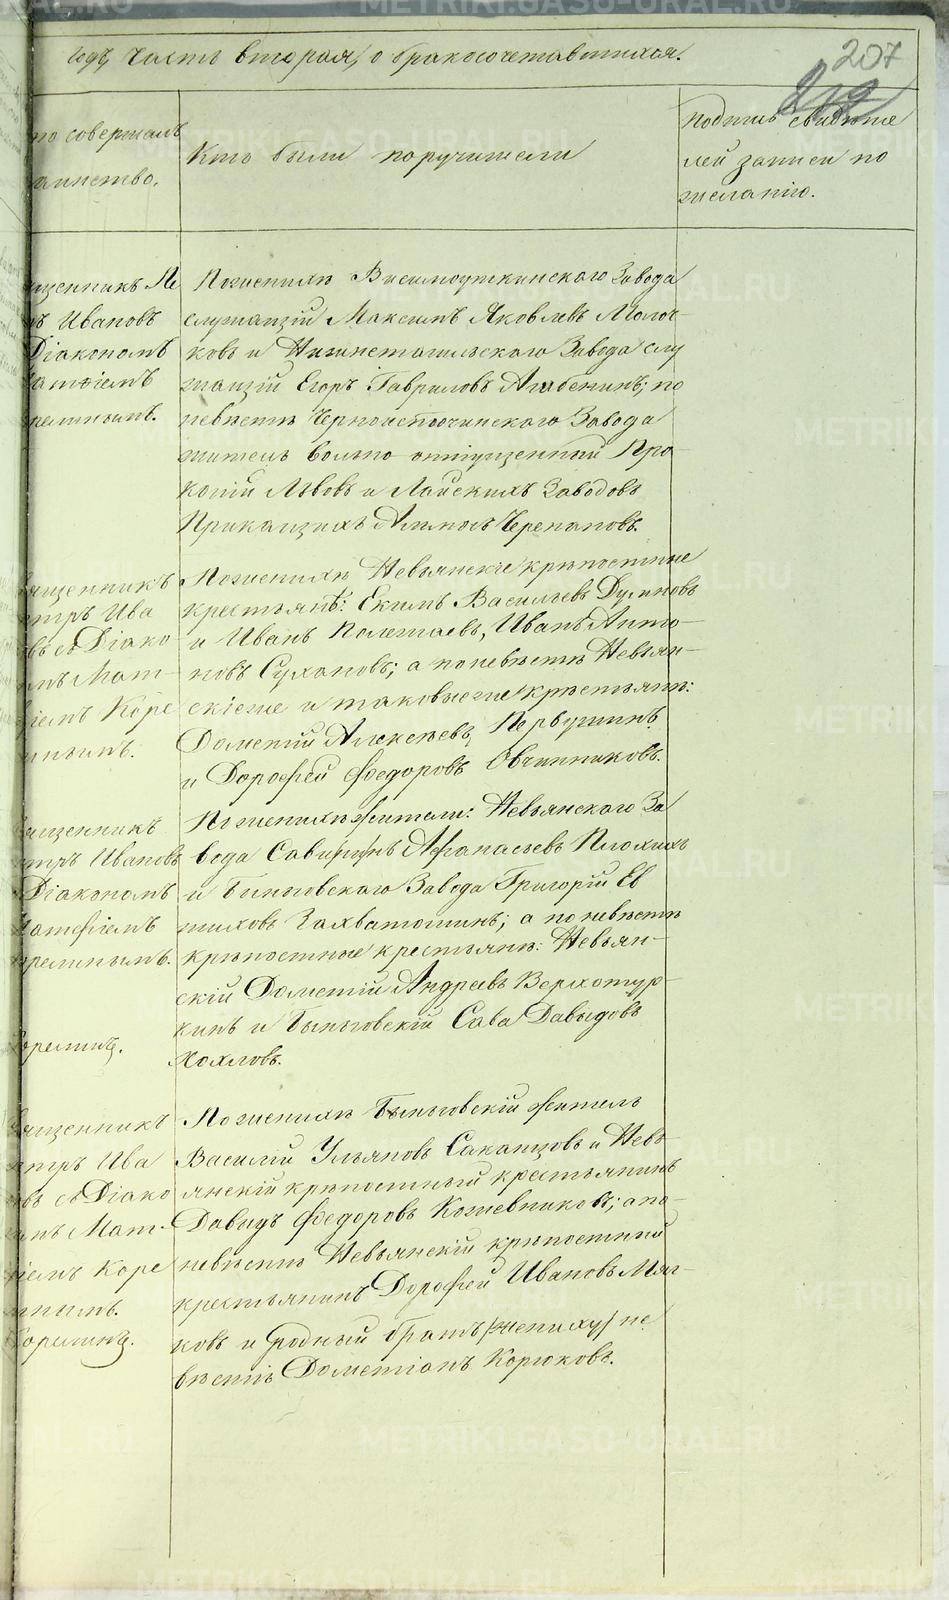 207
годъ, часть вторая, о бракосочетавшихся.
но совершалъ
таинство.
Кто были поручители
подпись свидѣте
лей записи по
желанію.
ященникъ Пе
ръ Ивановъ
Діакономъ
Матѳіемъ
орелинымъ.
По женихѣ Висимоуткинскаго Завода
служащій Максимъ Яковлевъ Молоч-
ковъ и Нижнетагильскаго Завода слу
жащій Егоръ Гавриловъ по
невѣстѣ Черноисточинскаго Завода
житель вольно отпущенный Про
копій Львовъ и Лайскихъ Заводовъ
Прикащикъ Черепановъ.
вященникъ
етръ Ива
овъ съ Діако
омъ Мат-
ѳіемъ Коре
инымъ.
По женихѣ Невьянскіе крѣпостные
крестьянѣ: Екимъ Васильевъ Думновъ
и Иванъ Полетаевъ, Иванъ Анто-
новъ Сухановъ; а по невѣстѣ Невьян-
скіеже и таковыеже крѣстьянѣ:
Дометій Алексѣевъ Первушинъ
и Дорофей Ѳедоровъ Овчинниковъ.
вященникъ
етръ Ивановъ
Діакономъ
Матѳіемъ
орелинымъ.
Корелинъ.
По женихѣ жители: Невьянскаго За
вода Аѳанасьевъ Плохихъ
и Быньговскаго Завода Григорій Ев
тиховъ Захватошинъ; а по невѣстѣ
крѣпостные крестьянѣ: Невьян-
скій Дометій Андреевъ Верхотур-
кинъ и Быньговскій Сава Давыдовъ
Хохловъ.
вященникъ
етръ Ива
овъ съ Діако
омъ Мат-
ѳіемъ Коре
инымъ.
Корелинъ.
По женихѣ Быньговскій житель
Василій Ульяновъ Саканцовъ и Невь-
янскій крѣпостный крестьянинъ
Давидъ Ѳедоровъ Кожевниковъ; а по-
невѣстѣ Невьянскій крѣпостный
крестьянинъ Дорофей Ивановъ Мяг-
ковъ и родный братъ /жениху/ не
вѣстѣ Дометіанъ Корюковъ.